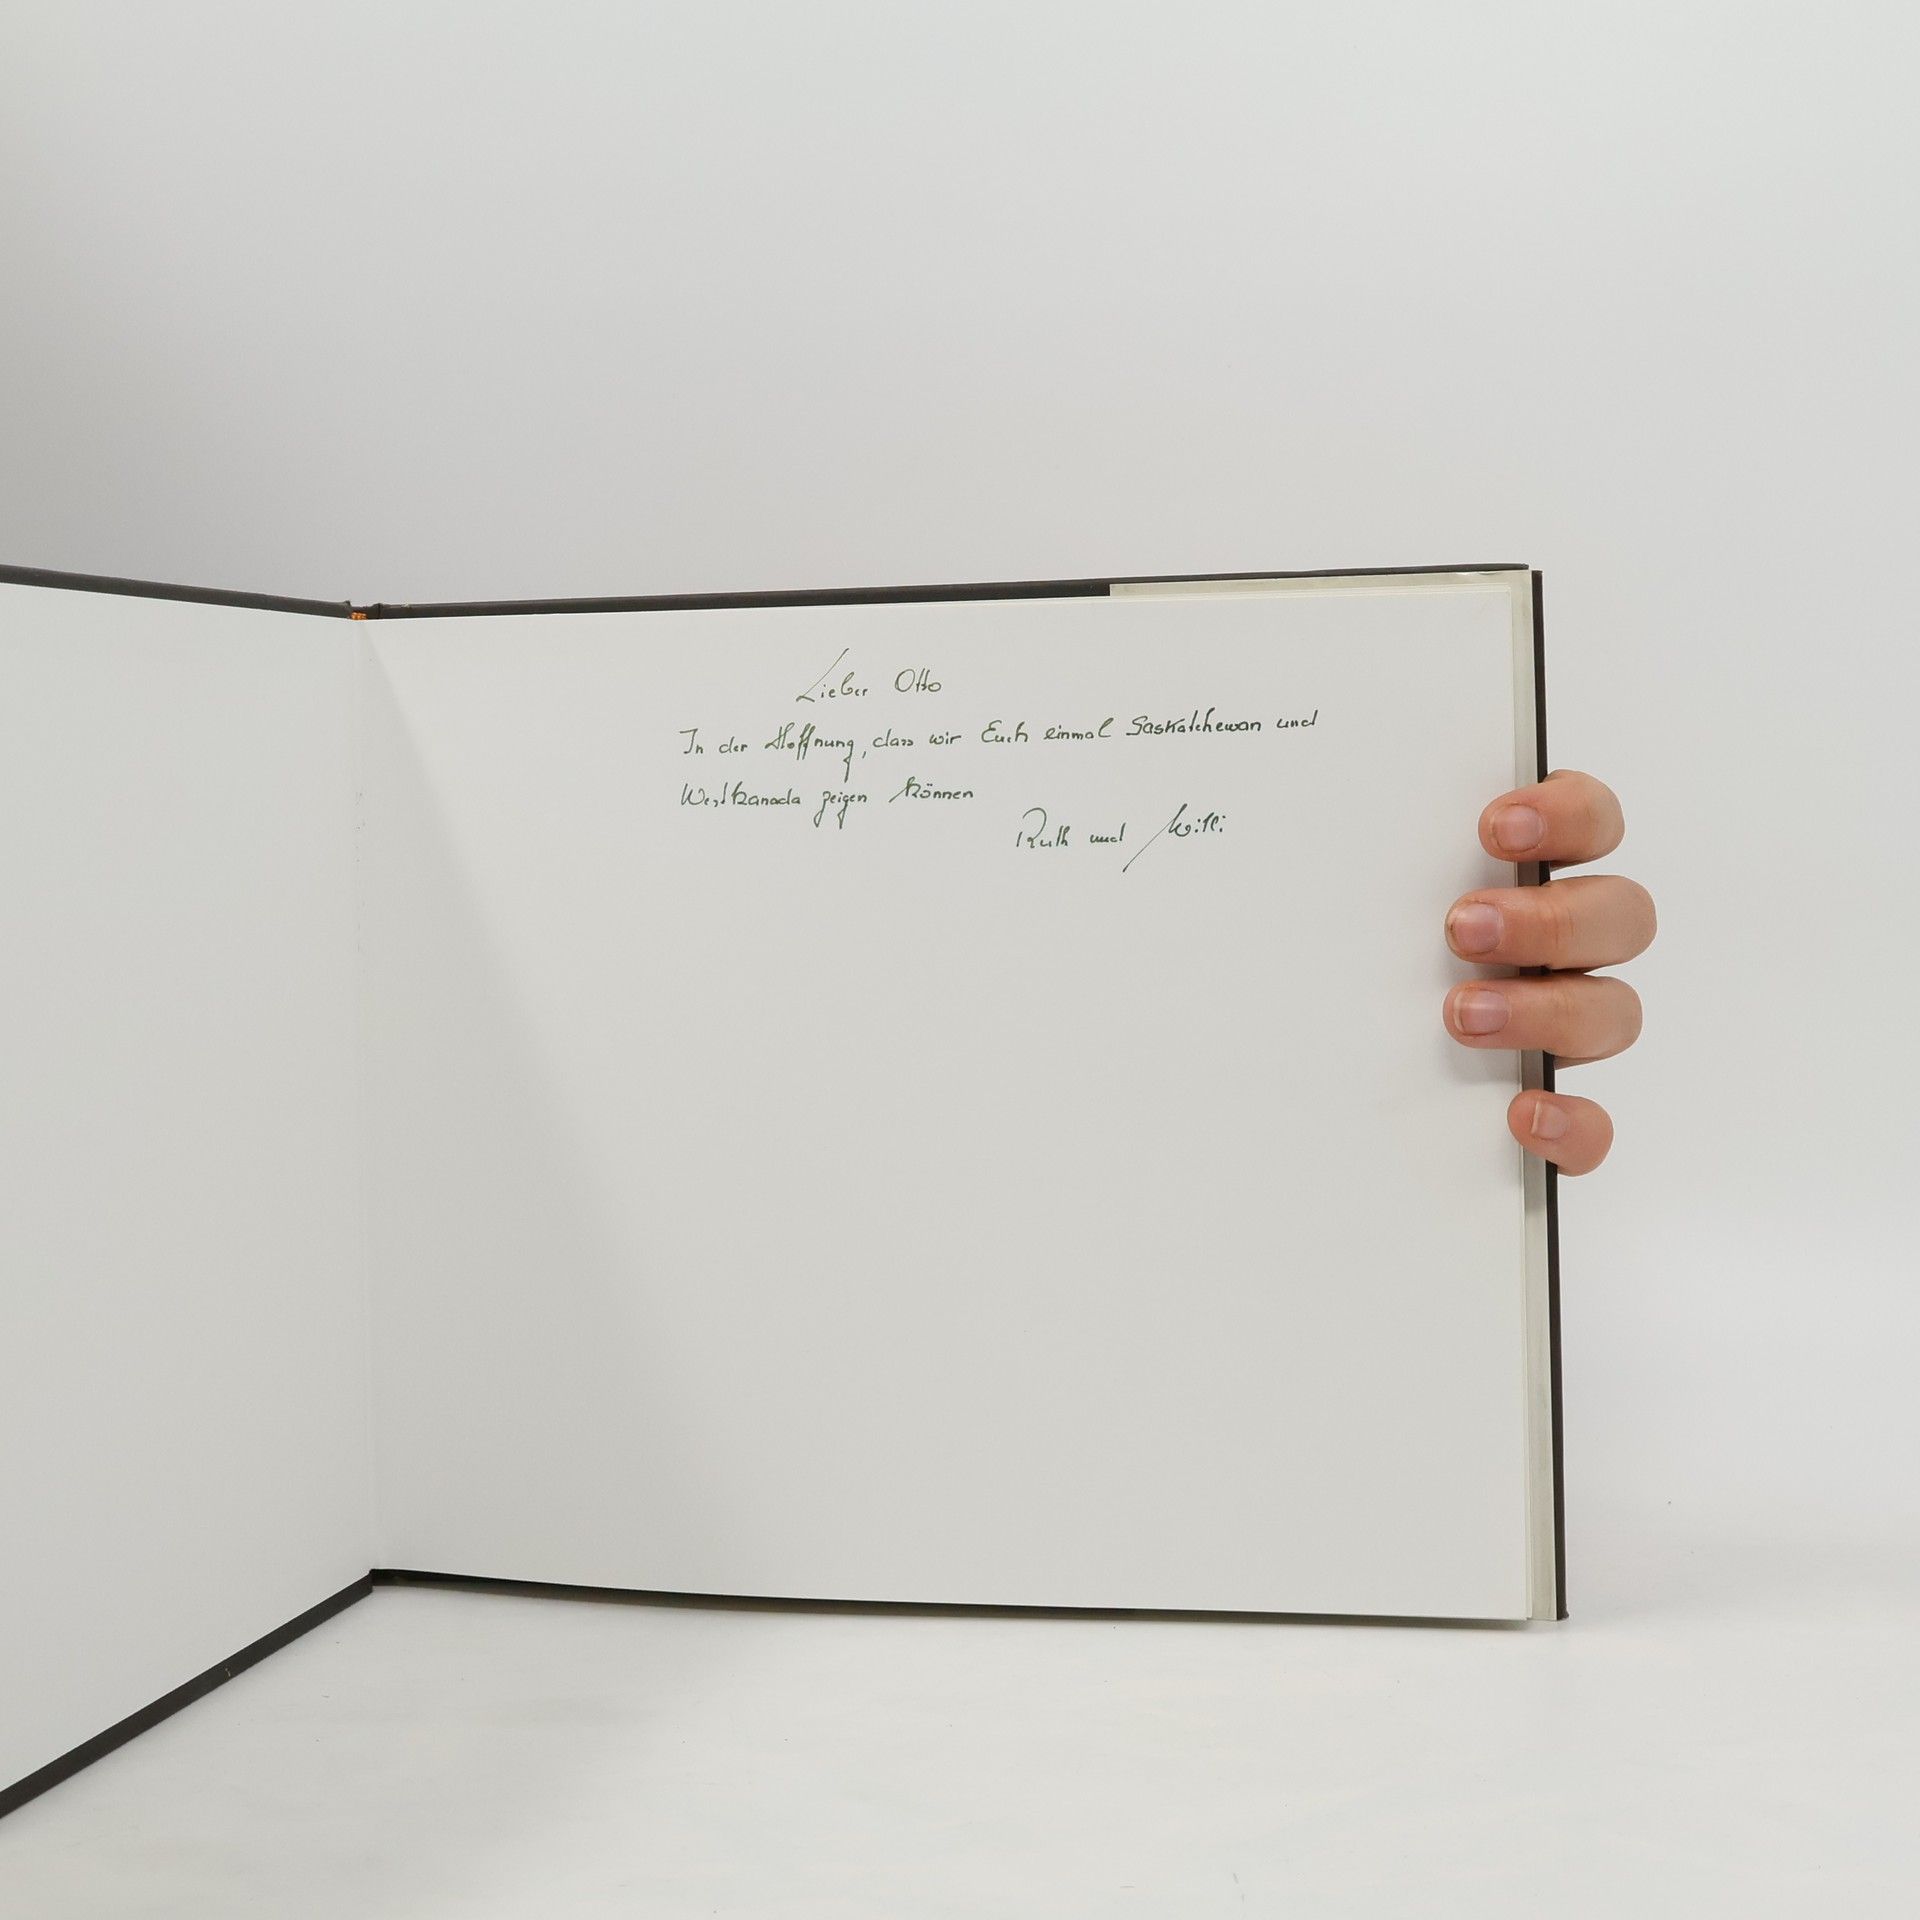 Lieber Otto
In der Hoffnung, dass wir Euch einmal Saskatchewan und
Westkanada zeigen können
Ruth und Willi